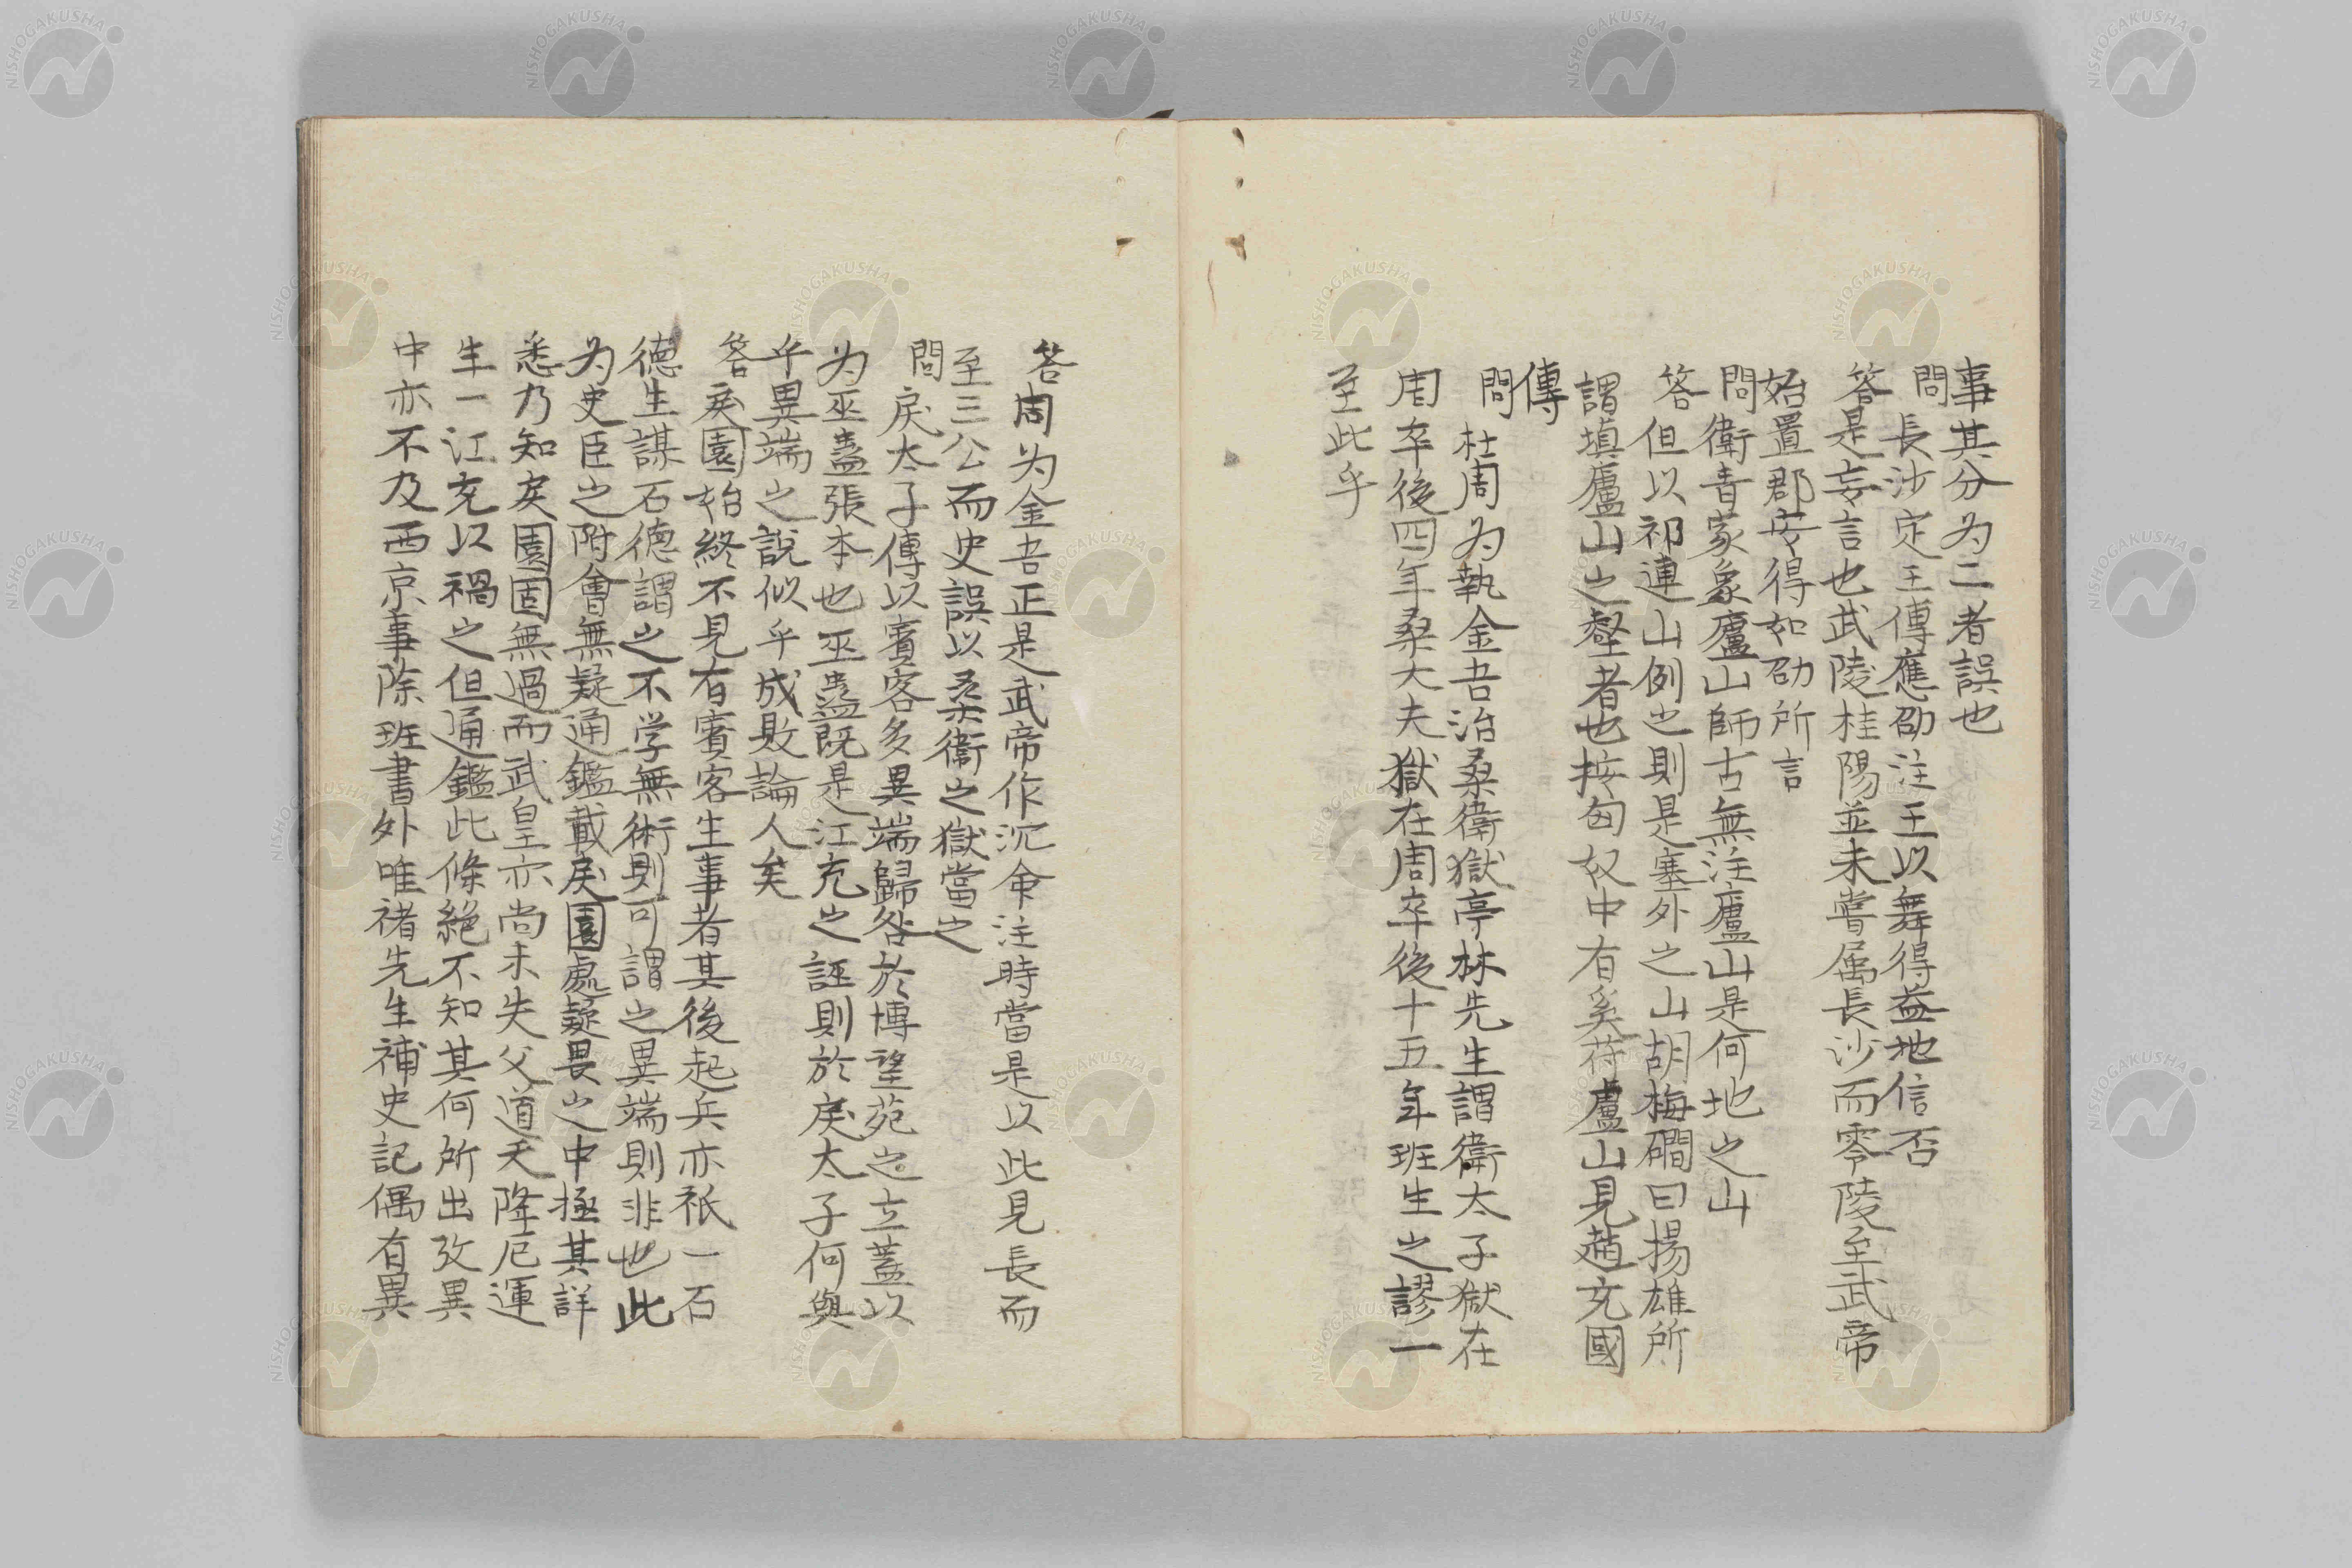 事其分为二者誤也
問長沙定王傳應劭注王以舞得益地信否
答是妄言也武陵桂陽並未嘗属長沙而零陵至武帝
始置郡安得如劭所言
問衛青冢象廬山師古無注廬山是何地之山
答但以祁連山例之則是塞外之山胡梅磵曰揚雄所
謂填廬山之壑者也按匈奴中有奚苻盧山見趙充國
傳
問杜周为執金吾治桑衛獄亭林先生謂衛太子獄在
周卒後四年桑大夫獄在周卒後十五年班生之謬一
至此乎
答周为金吾正是武帝作沉命注時當是以此見長而
至三公而史誤以桑衛之獄當之
問戾太子傳以賓客多異端歸咎於博望苑之立蓋以
为巫蠱張本也巫蠱既是江充之誣則於戾太子何與
乎異端之說似乎成敗論人矣
答戾園始終不見有賓客生事者其後起兵亦祇一石
德生謀石德謂之不学無術則可謂之異端則非也此
为史臣之附會無疑通鑑載戾園處疑畏之中極其詳
悉乃知戾園固無過而武皇亦尚未失父道天降厄運
生一江充以禍之但通鑑此條絕不知其何所出攷異
中亦不及西京事除班書外唯褚先生補史記偶有異
NISHOGAKUSHA